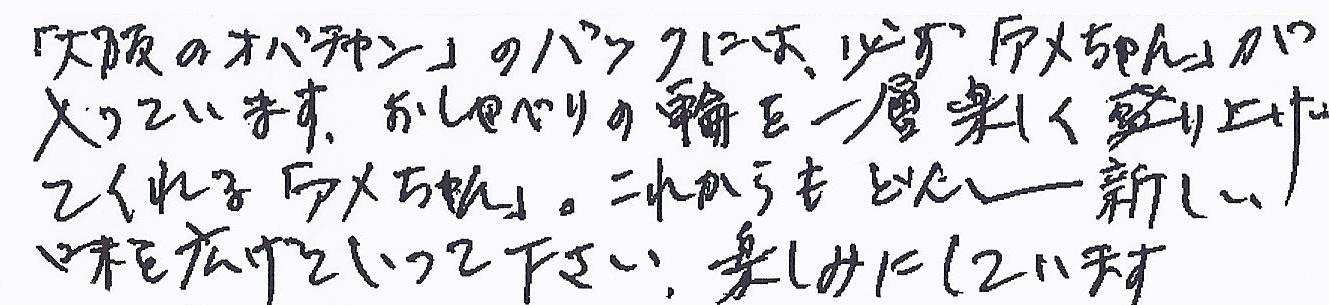 「大阪のオバチャン」のバックには、必ず「アメちゃん」が
入っています。おしゃべりの輪を一層楽しく盛り上げ
てくれる「アメちゃん」。これからもどんどん新しい
味を広げていって下さい。楽しみにしています